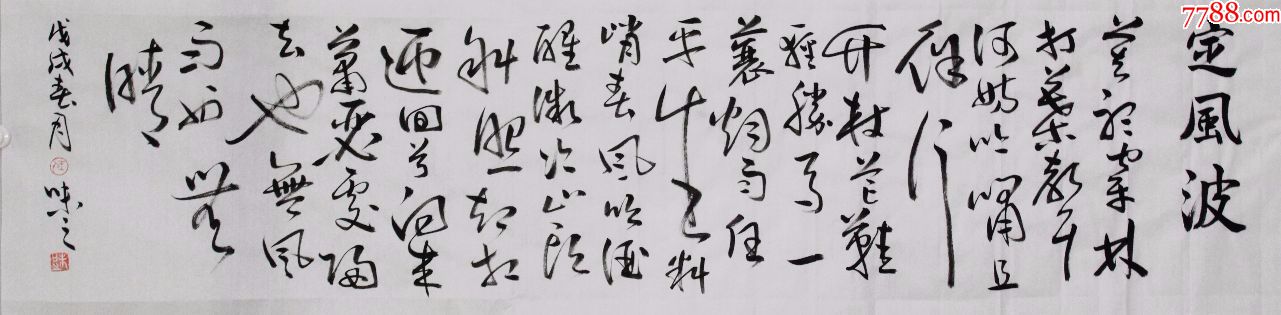 定風波
莫聽穿林
打葉聲
何妨吟嘯且
徐行
竹杖芒鞋
輕勝馬一
蓑烟雨任
平生料
峭春風吹酒
醒微冷山頭
斜照却相
迎回首向来
蕭瑟處歸
去也無風
雨也无
晴
戊戌春月 味之
7788.com